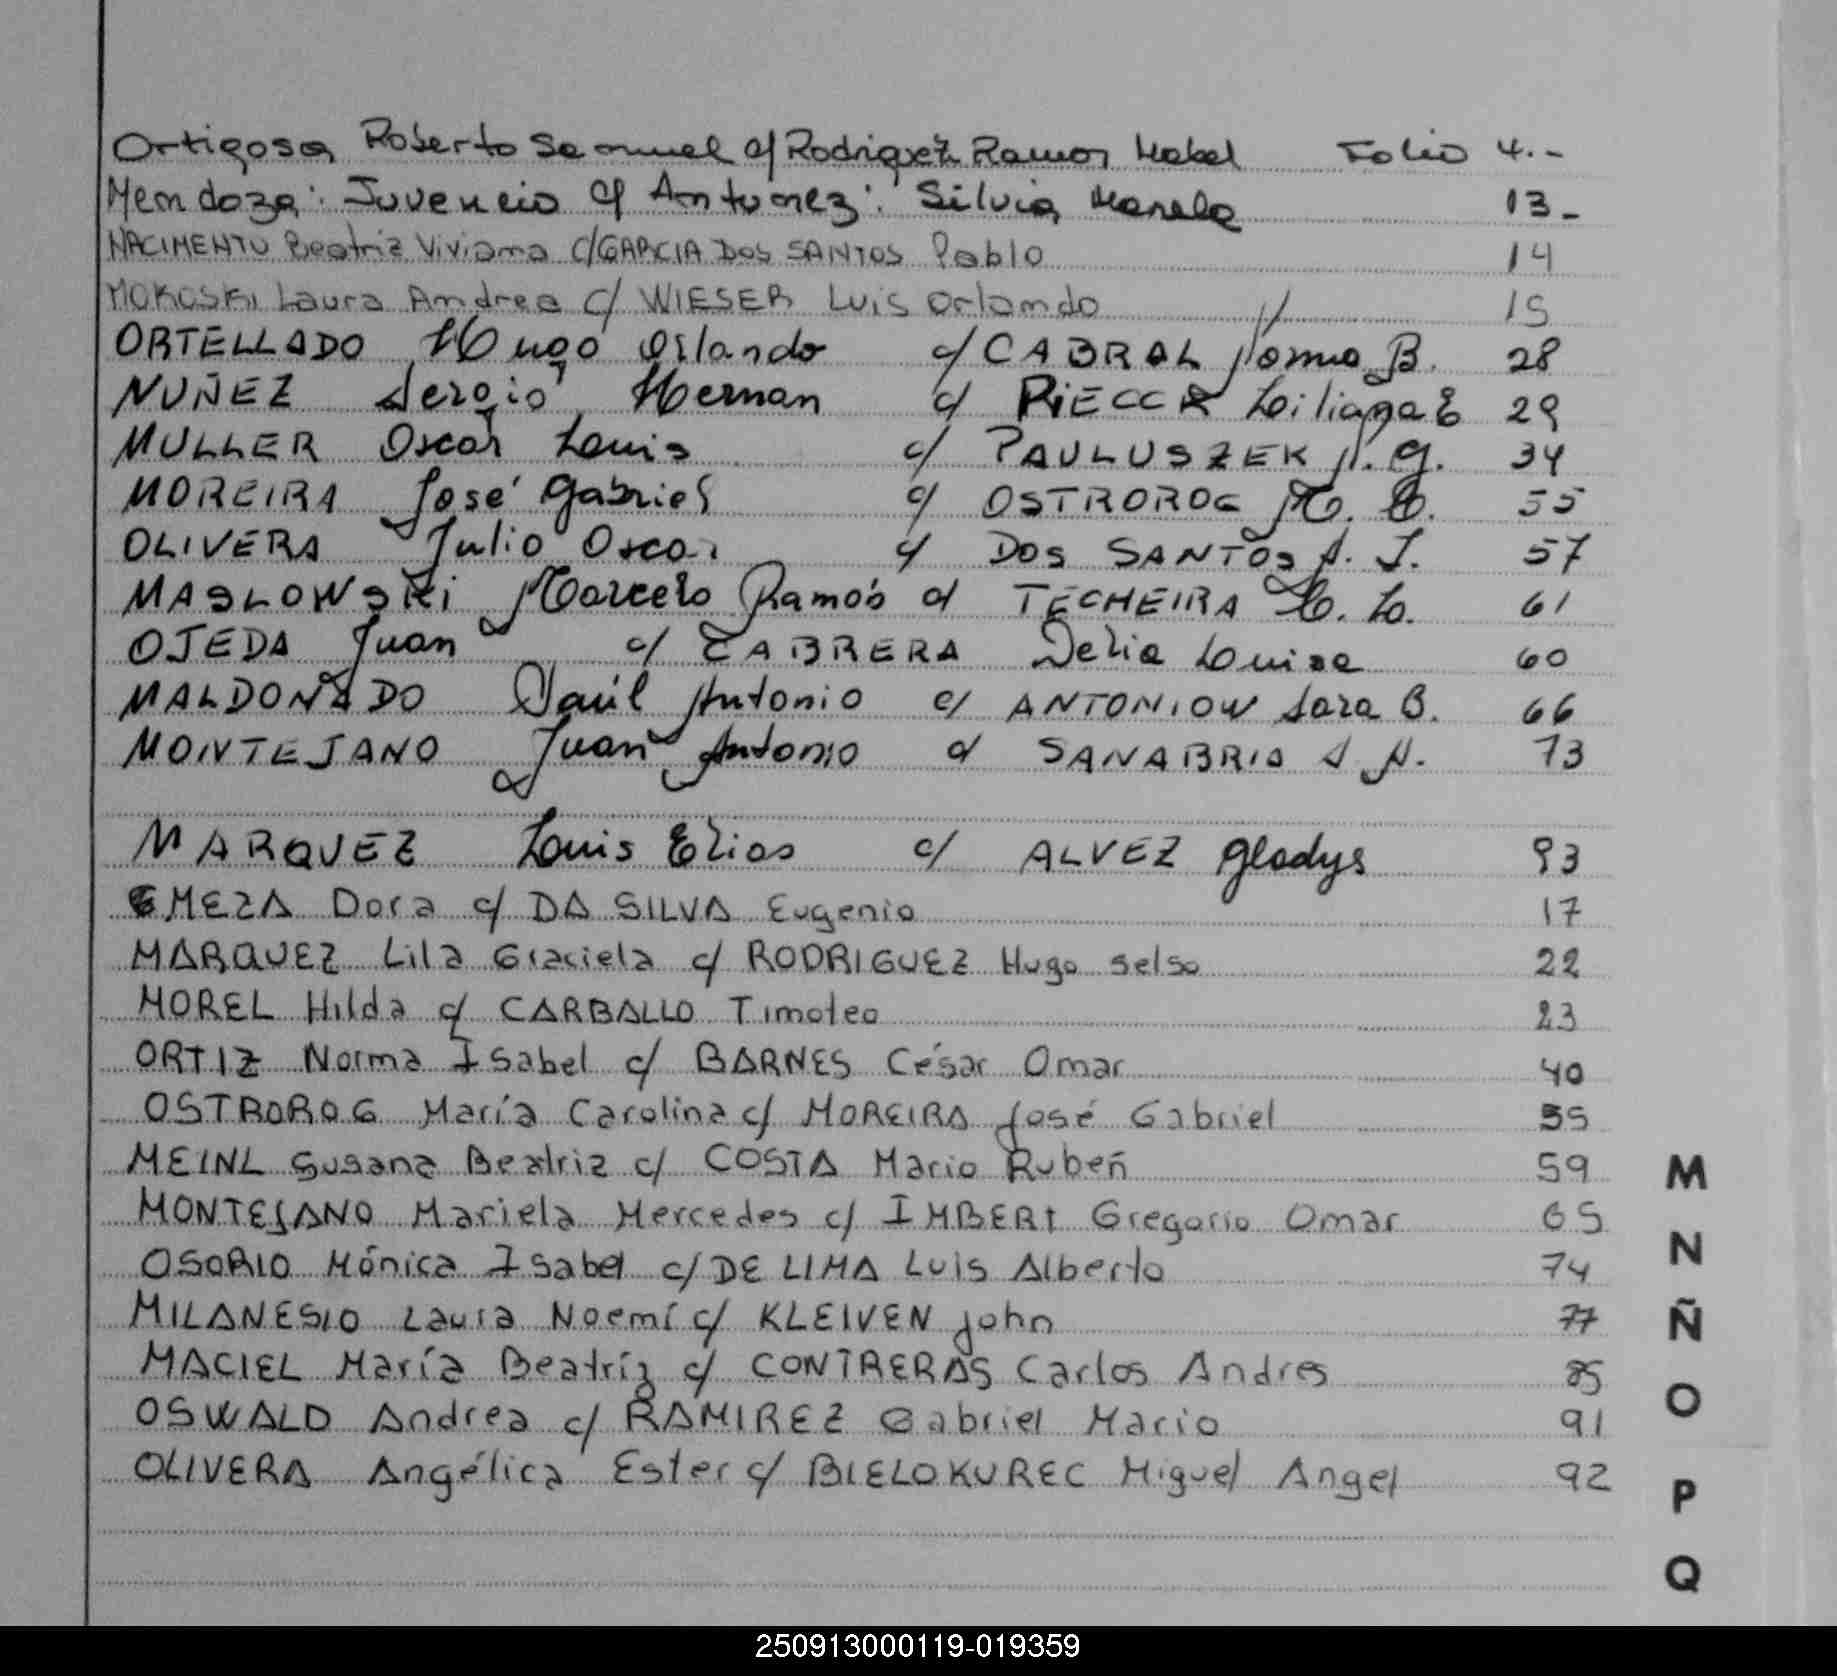 Ortigosa Roberto Samuel c/ Rodriguez Ramos Mabel Folio 4.-
Mendoza: Juvencio c/ Antunez: Silvia Mariela 13-
NACIMENTO Beatriz Viviana C/GARCIA DOS SANTOS Pablo 14
MOKOSKI Laura Andrea C/ WIESER Luis Orlando // 15
ORTELLADO Hugo Orlando c/ CABRAL Norma B. 28
NUÑEZ Sergio Hernan c/ RiECCR Liliana E 29
MULLER Oscar Luis c/ PAULUSZEK N. G. 34
MOREIRA José Gabriel c/ OSTROROG M. C. 55
OLIVERA Julio Oscar c/ DOS SANTOS A. J. 57
MASLOWSKi Marcelo Ramón c/ TECHEIRA L. 61
OJEDA Juan c/ CABRERA Delia Luisa 60
MALDONADO Raúl Antonio c/ ANTONIOW Sara B. 66
MONTEJANO Juan Antonio c/ SANABRIA S. N. 73
MARQUEZ Luis Elias c/ ALVEZ Gladys 93
MEZA Dora c/ DA SILVA Eugenio 17
MARQUEZ Lila Graciela c/ RODRIGUEZ Hugo Selso 22
MOREL Hilda c/ CARBALLO Timoteo 23
ORTIZ Norma Isabel c/ BARNES César Omar 40
OSTROROG María Carolina c/ MOREIRA José Gabriel 55
MEINL Susana Beatriz c/ COSTA Mario Rubén 59
MONTEJANO Mariela Mercedes c/ IMBERT Gregorio Omar 65
OSORIO Mónica Isabel c/ DE LIMA Luis Alberto 74
MILANESIO Laura Noemí c/ KLEIVEN John 77
MACIEL María Beatríz c/ CONTRERAS Carlos Andres 85
OSWALD Andrea c/ RAMIREZ Gabriel Mario 91
OLIVERA Angélica Ester c/ BIELOKUREC Miguel Angel 92
M
N
Ñ
O
P
Q
250913000119-019359